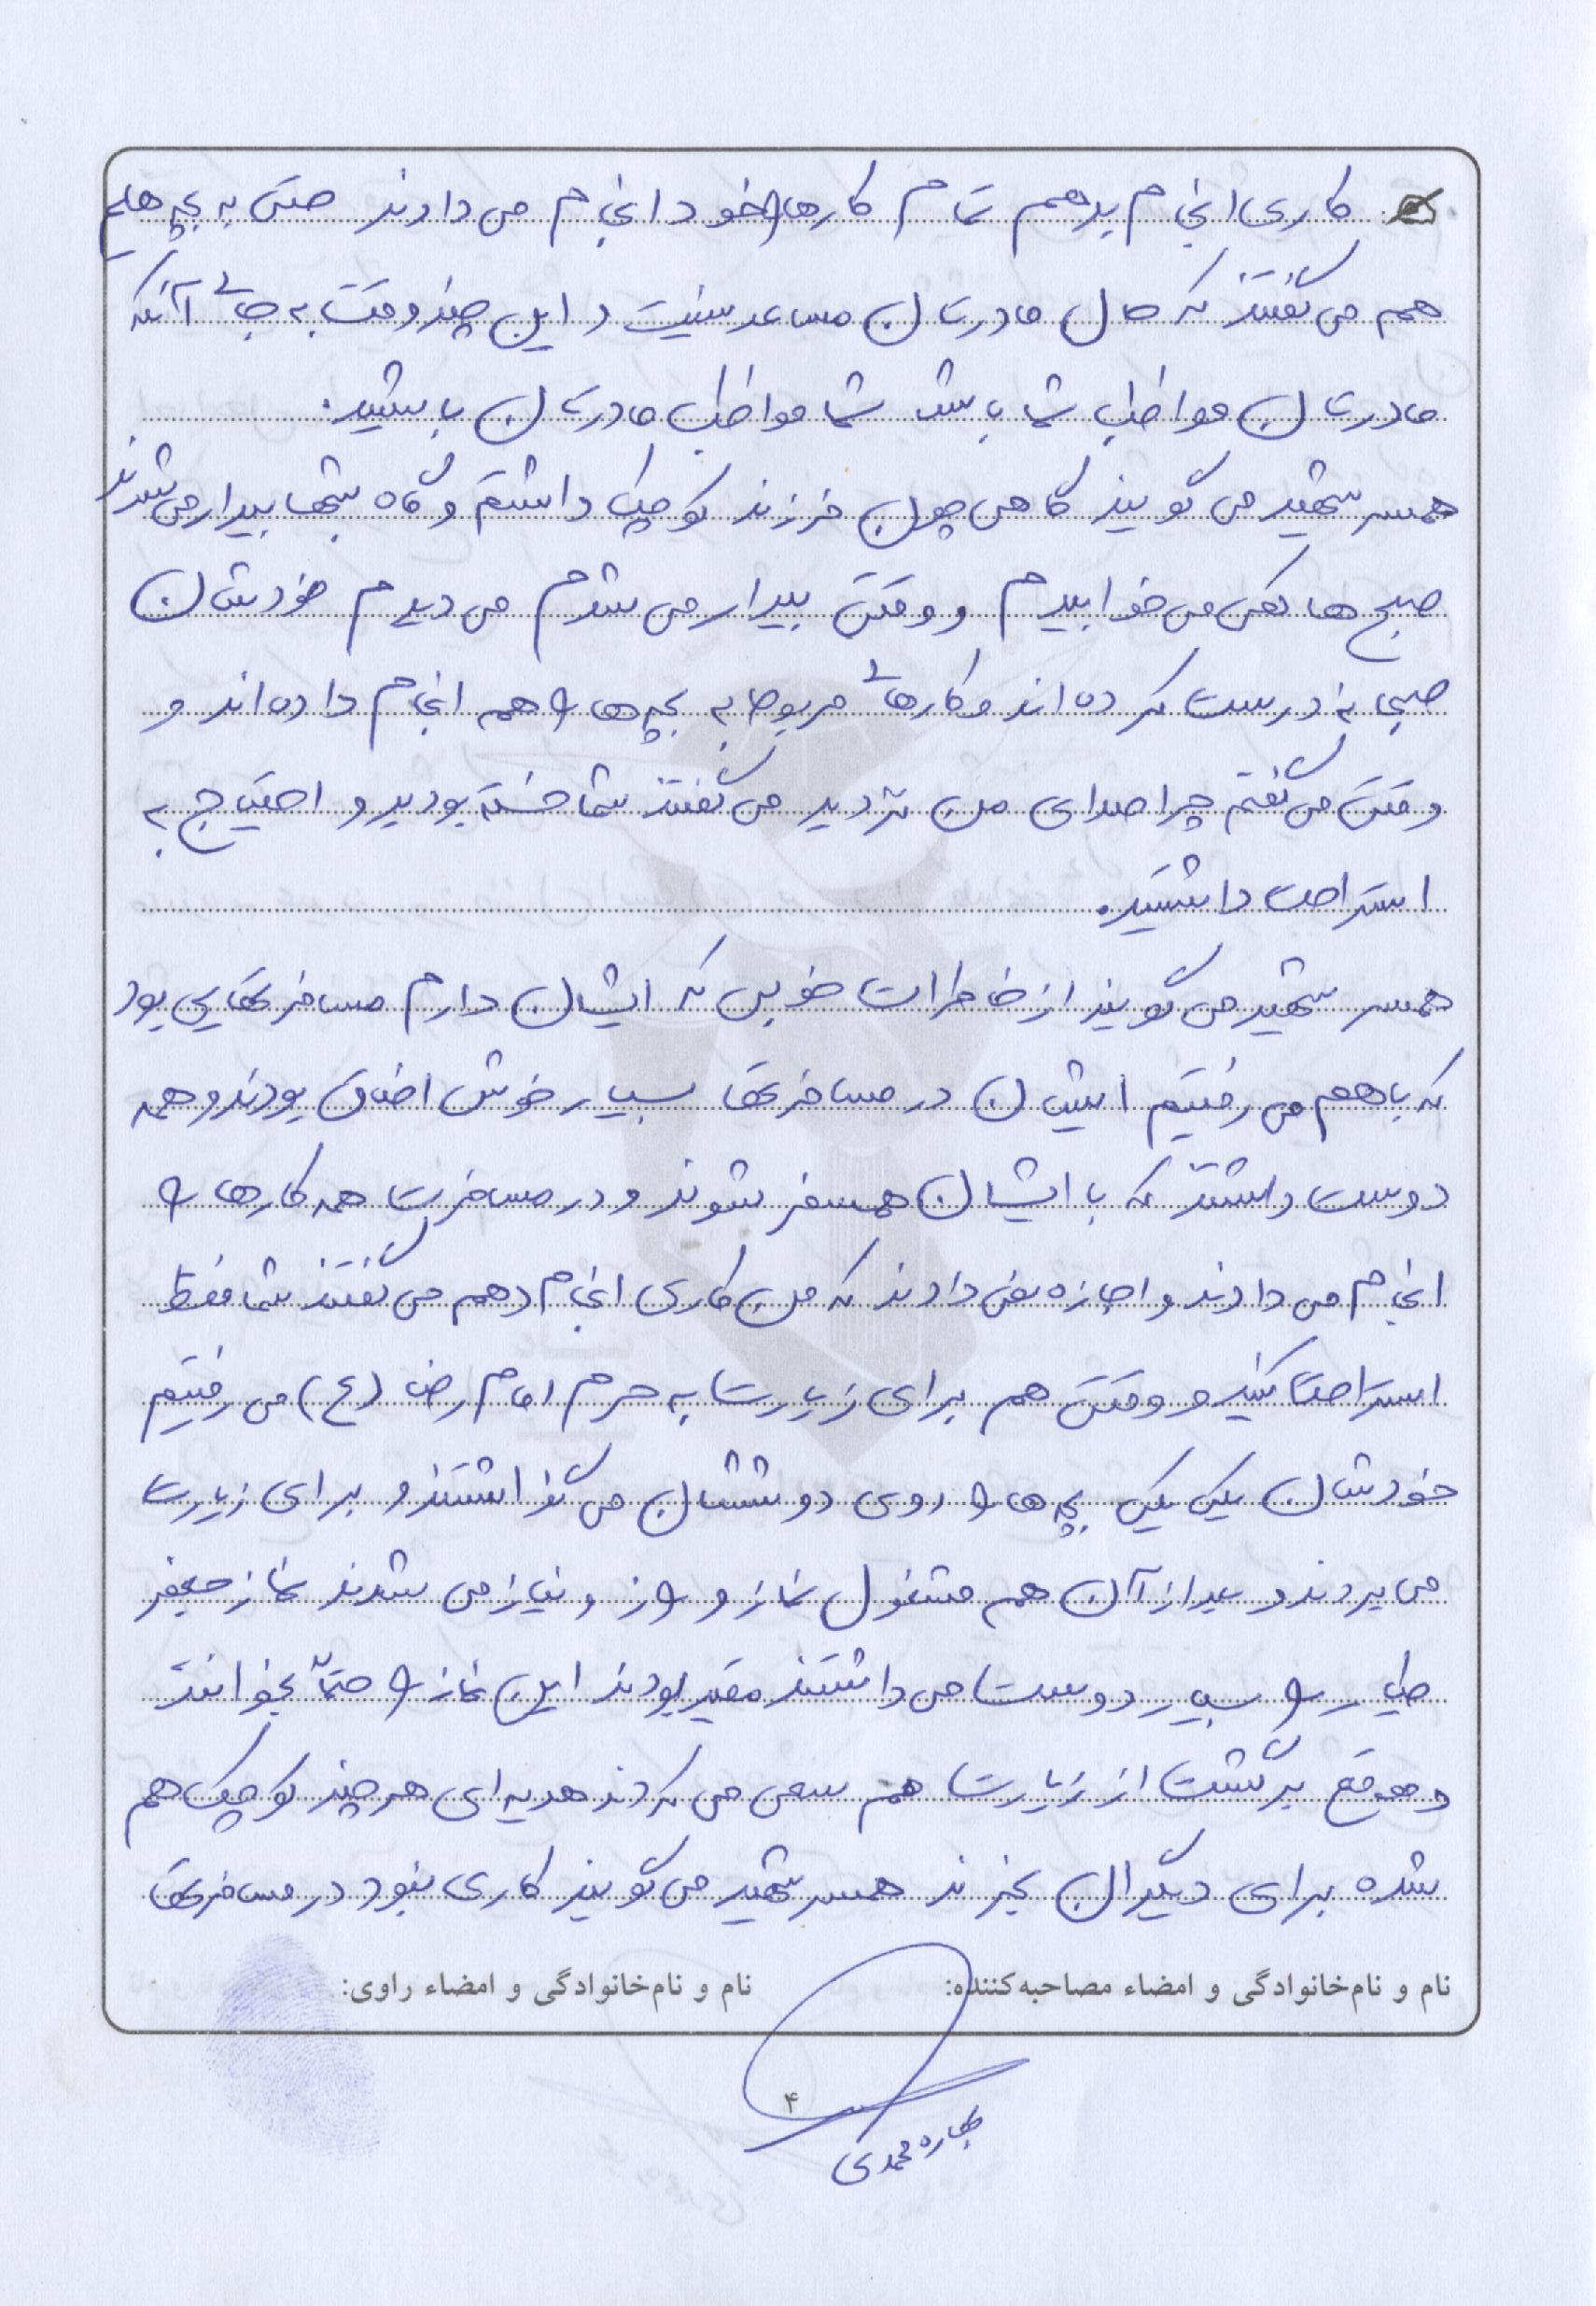 کاری انجام بدهم تمام کارها را خود انجام می دادند حتی به بچه هایم
هم می گفتند که حال مادرتان مساعد نیست و این چند وقت به جای آنکه
مادرتان مواظب شما باشد شما مواظب مادرتان باشید.
همسر شهید می گویند گاهی چون فرزند کوچک داشتم و گاه شبها بیدار می شدند
صبح ها کمی می خوابیدم و وقتی بیدار می شدم می دیدم خودشان
صبحانه درست کرده اند و کارهای مربوط به بچه ها را هم انجام داده اند و
وقتی می گفتم چرا صدای من نزدید می گفتند شما خسته بودید و احتیاج به
استراحت داشتید.
همسر شهید می گویند از خاطرات خوبی که ایشان دارم مسافرتهایی بود
که با هم می رفتیم ایشان در مسافرتها بسیار خوش اخلاق بودند و همه
دوست داشتند که با ایشان همسفر شوند و در مسافرت همه کارها را
انجام می دادند و اجازه نمی دادند که من کاری انجام دهم می گفتند شما فقط
استراحت کنید و وقتی هم برای زیارت به حرم امام رضا (ع) می رفتیم
خودشان یکی یکی بچه ها را روی دوششان می گذاشتند و برای زیارت
می بردند و بعد از آن هم مشغول نماز و راز و نیاز می شدند نماز جعفر
طیار را بسیار دوست می داشتند مقید بودند این نماز را حتماً بخوانند
و موقع برگشت از زیارت هم سعی می کردند هدیه ای هر چند کوچک هم
شده برای دیگران بخرند همسر شهید می گویند کاری نبود در مسافرتها
نام و نام‌خانوادگی و امضاء مصاحبه‌کننده: نام و نام‌خانوادگی و امضاء راوی:
۴
بهاره محمدی